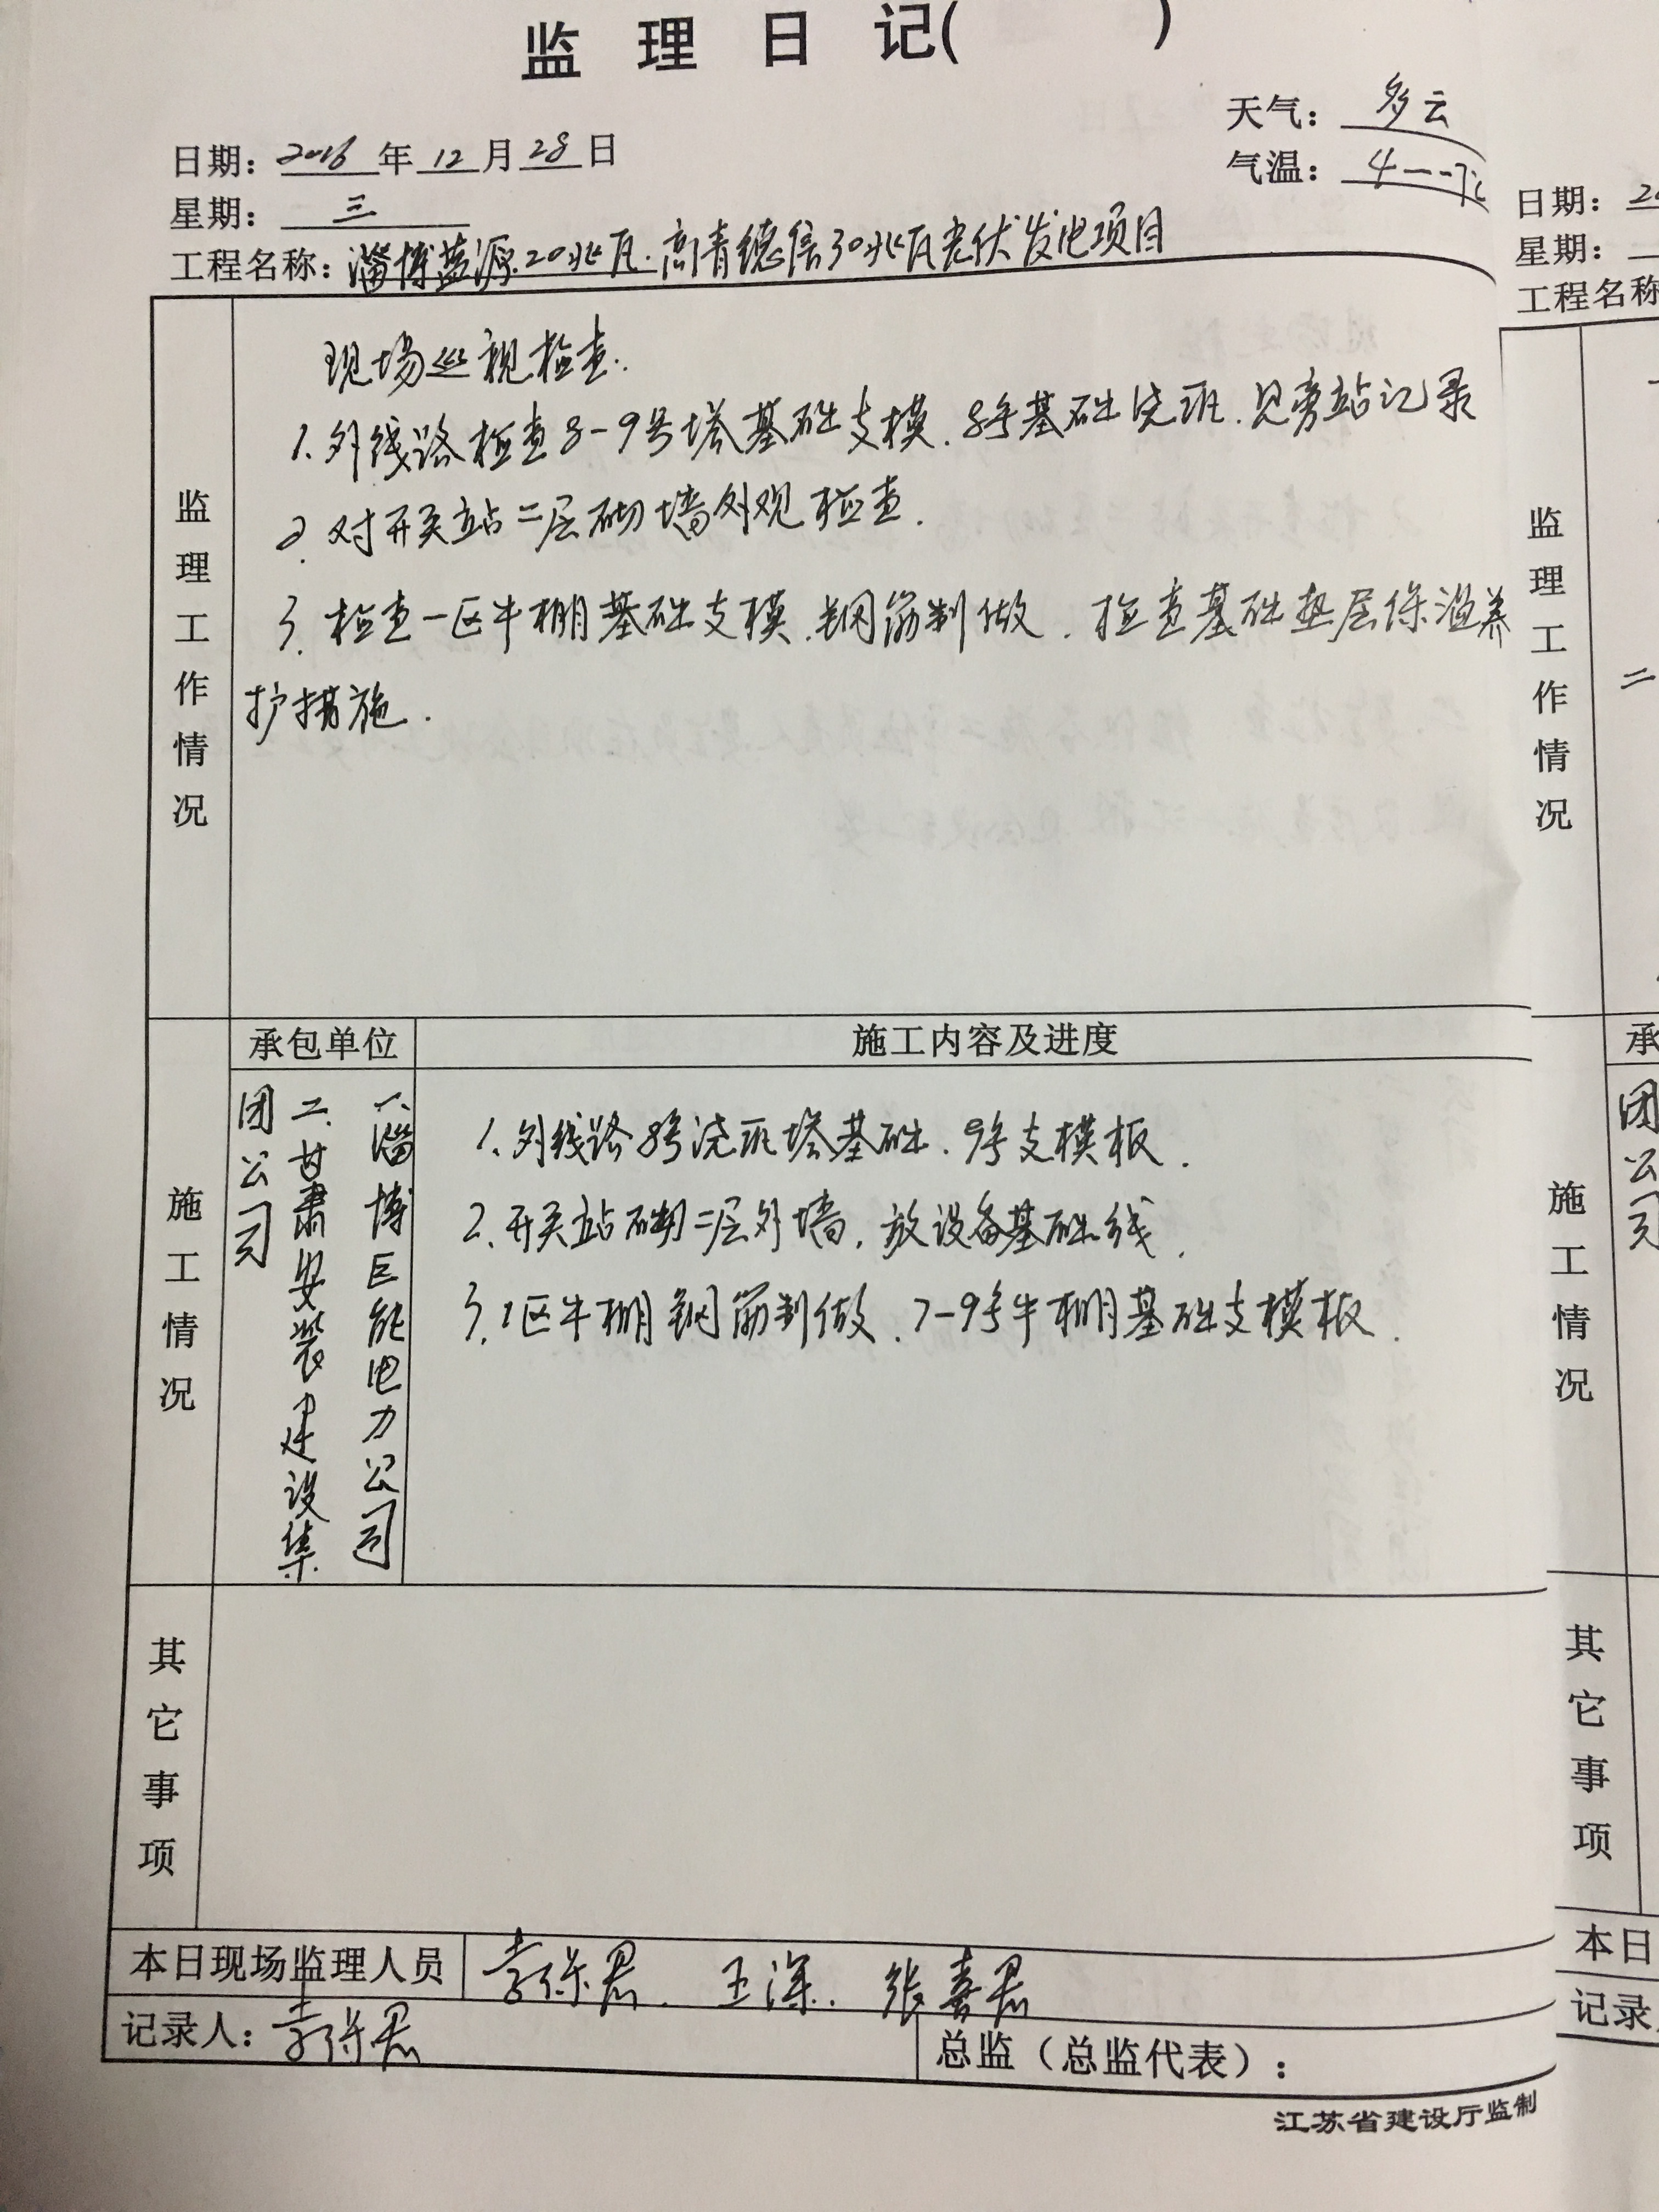 监 理 日 记( )
天气: 多云
日期: 2016 年 12 月 28 日
气温: 4--7℃
星期: 三
工程名称: 淄博蓝源.20兆瓦.高青德信30兆瓦光伏发电项目
监理工作情况
现场巡视检查.
1.外线路检查8-9号塔基础支模.8号基础浇砼.见旁站记录
2.对开关站二层砌墙外观检查.
3.检查一区牛棚基础支模.钢筋制做.检查基础垫层保温养
护措施.
施工情况
承包单位
施工内容及进度
一、淄博巨能电力公司
二、甘肃安装建设集
团公司
1.外线路8号浇砼塔基础.9号支模板.
2.开关站砌二层外墙,放设备基础线.
3.1区牛棚钢筋制做.7-9号牛棚基础支模板.
其它事项
本日现场监理人员
王深. 张喜君
记录人:
总监(总监代表):
江苏省建设厅监制
日期: 20
星期:
工程名称
监理工作情况
二
承
团公司
施工情况
其它事项
本日
记录